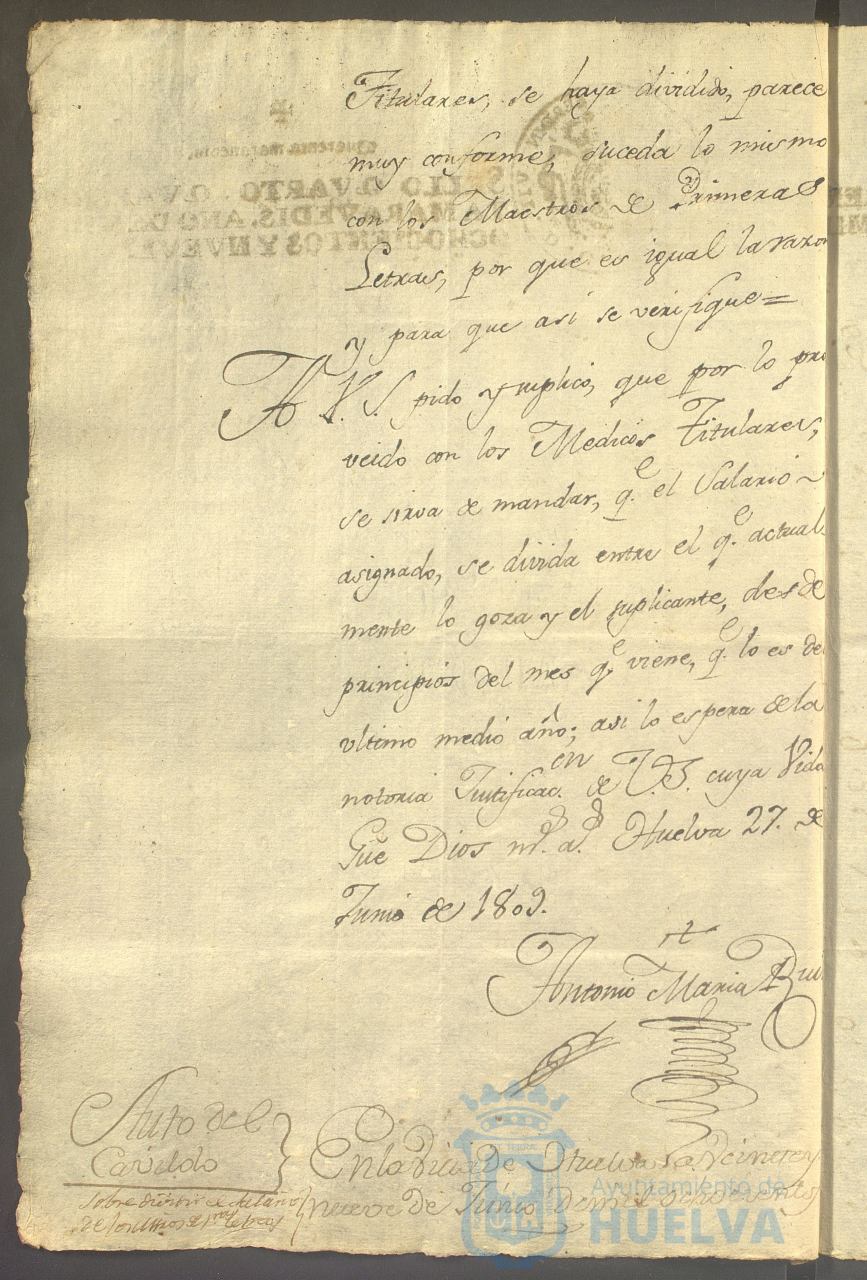 Titulares, se haya dividido, parece
muy conforme, suceda lo mismo
con los Maestros de Primeras
Letras, por que es igual la razo
y para que asi se verifique=
A V. S. pido y suplico, que por lo pro
veido con los Medicos Titulares,
se sirva de mandar, q.e el Salario ~
asignado, se divida entre el q.e actual
mente lo goza y el suplicante, desde
principios del mes q.e viene, q.e lo es de
ultimo medio año; asi lo espera de la
notoria Justificac.en de V.S. cuya Vida
Gue Dios m.s a.s Huelva 27. de
Junio de 1809.
Antonio Maria Rui
Auto del
Cavildo
Sobre
de los mros de 1.ras letras
En la Villa de Huelva en veinte y
nueve de Junio de mil ochocientos
SELLO QVARTO, QVA
MARAVEDIS, AÑO
OCHOCIENTOS Y NUEVE
Ayuntamiento de
HUELVA